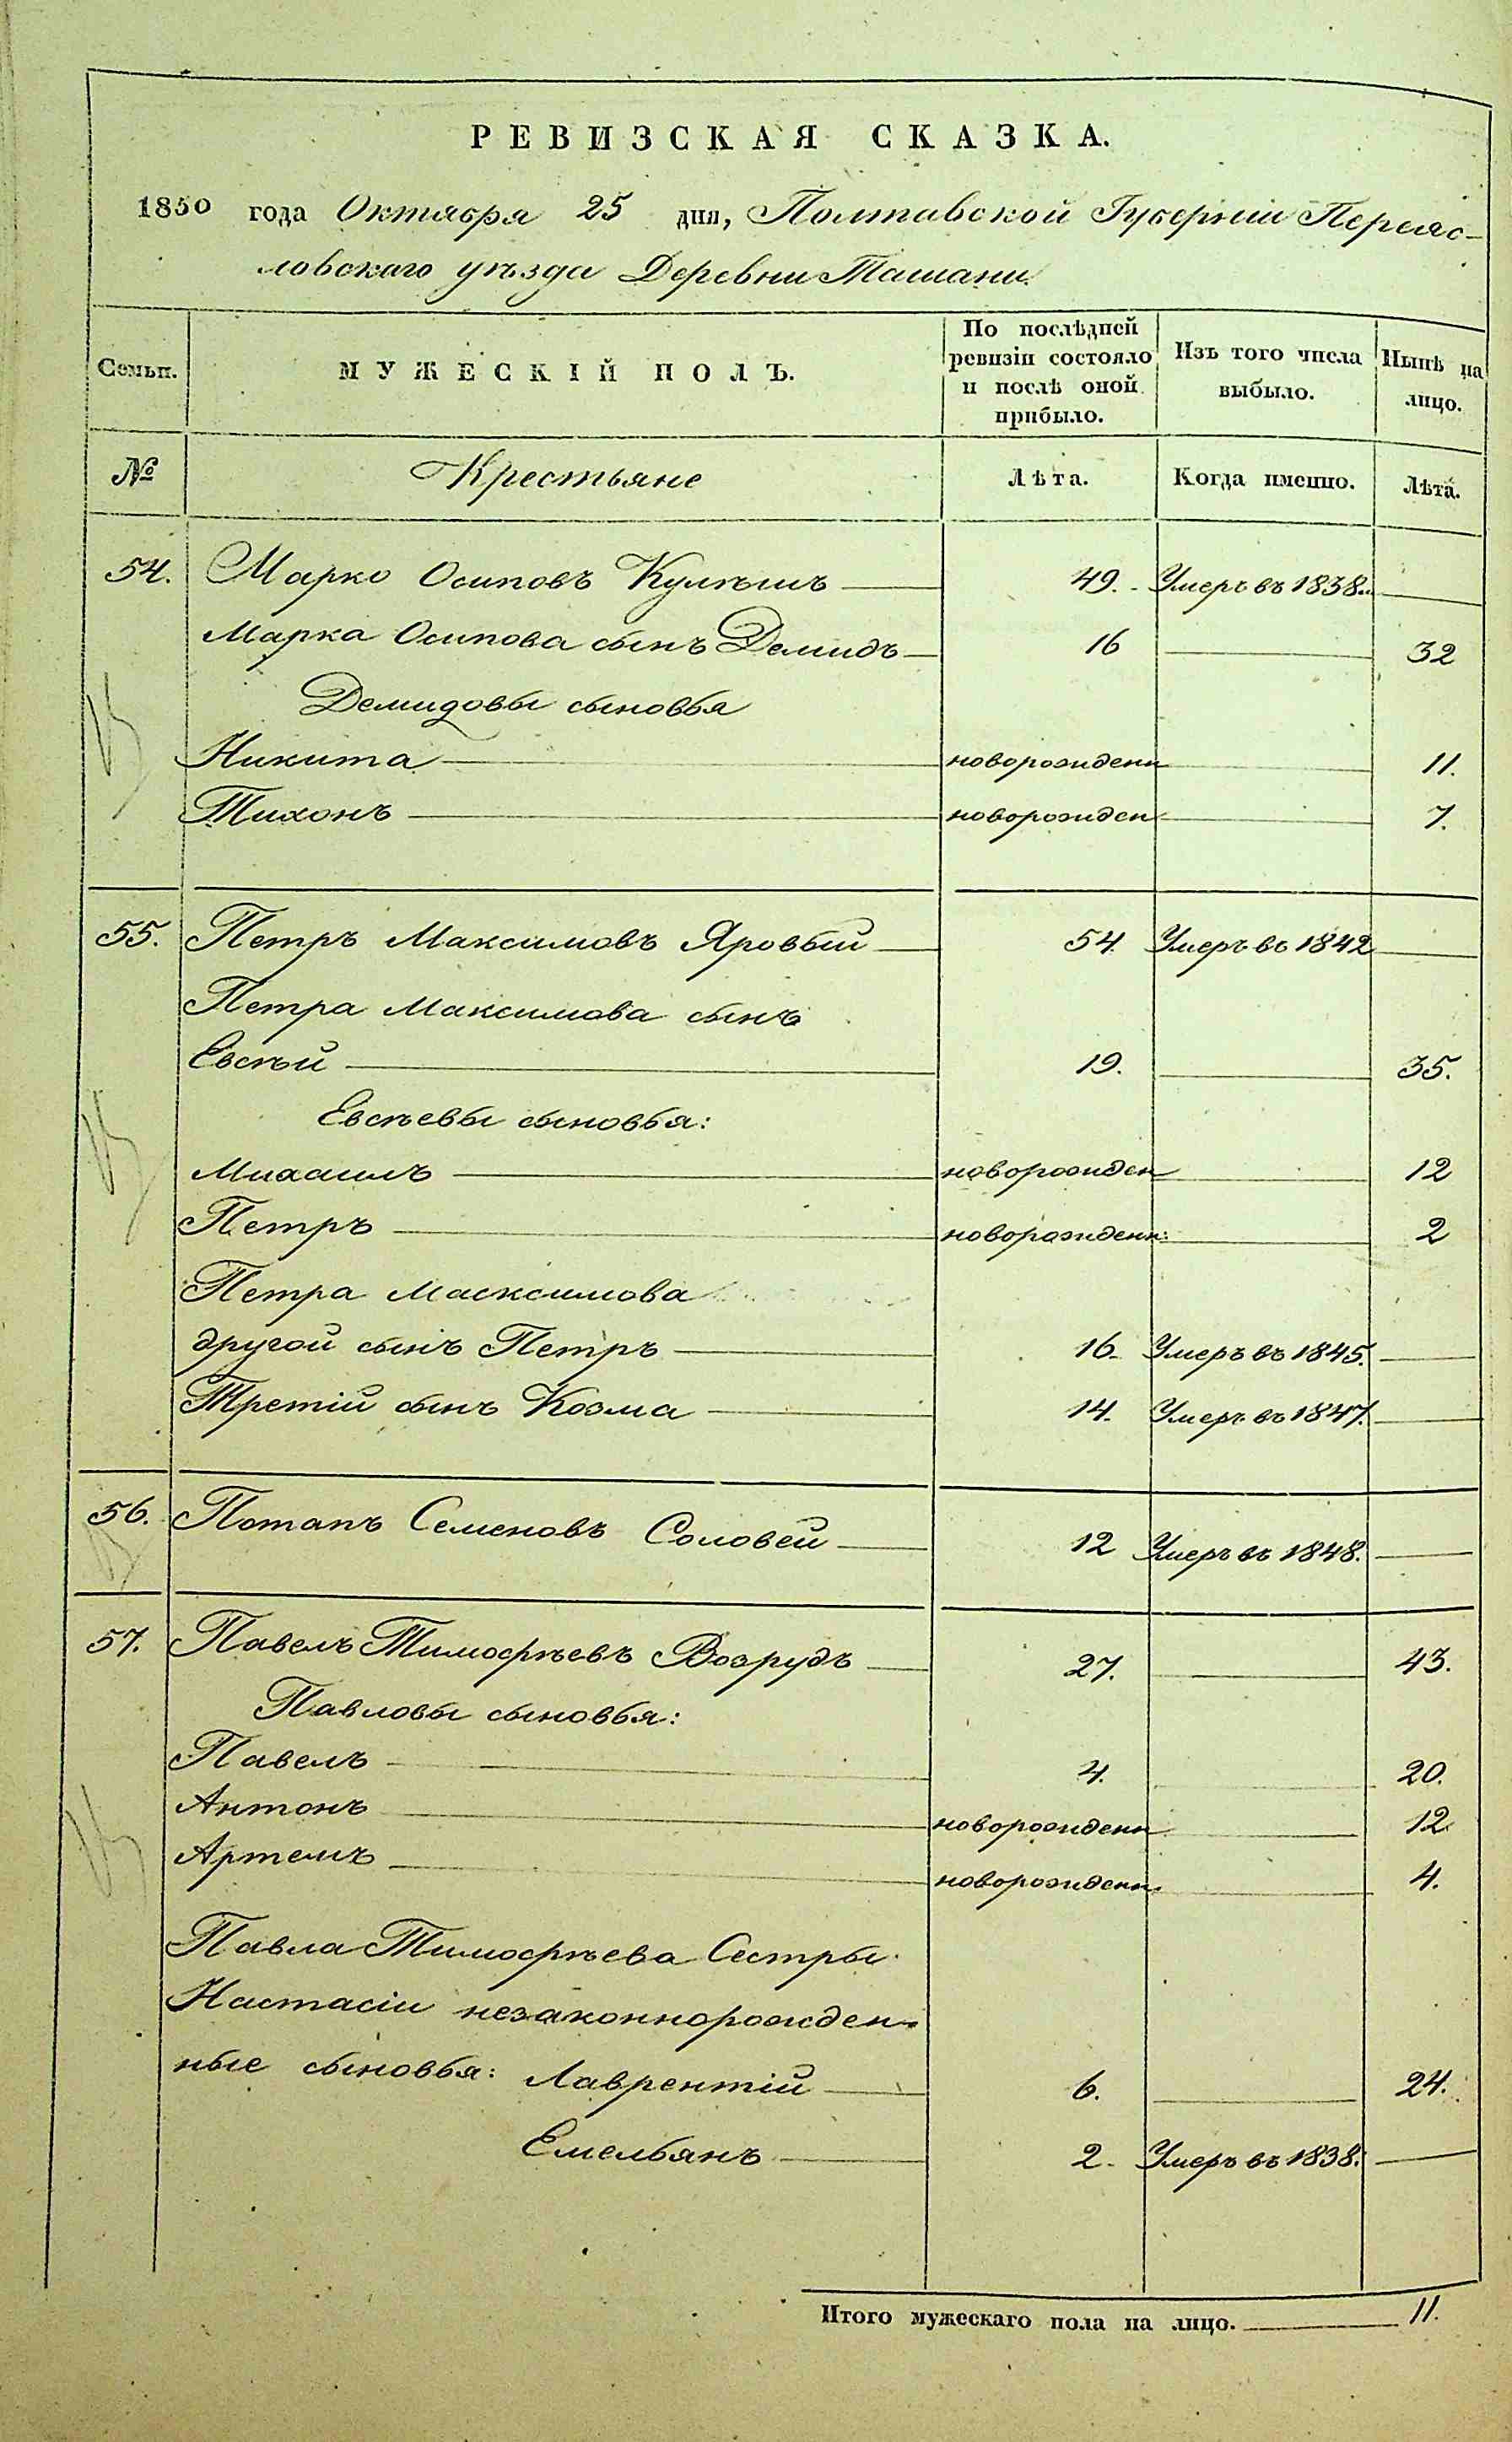 РЕВИЗСКАЯ СКАЗКА.
1850 года Октября 25 дня, Полтавской Губерніи Переяс-
ловскаго уѣзда Деревни Ташани.
Семьи. МУЖЕСКІЙ ПОЛЪ. По послѣдней ревизіи состояло и послѣ оной прибыло. Изъ того числа выбыло. Нынѣ на лицо.
№ Крестьяне Лѣта. Когда именно. Лѣта.
54. Марко Осиповъ Кулѣшъ 49. Умеръ въ 1838.
Марка Осипова сынъ Демидъ 16 32
Демидовы сыновья
Никита новорожденн 11.
Тихонъ новорожден 7.
55. Петръ Максимовъ Яровый 54 Умеръ въ 1842
Петра Максимова сынъ
Евсѣй 19. 35.
Евсѣевы сыновья:
Михаилъ новорожден 12
Петръ новорожденн: 2
Петра Масксимова
другой сынъ Петръ 16. Умеръ въ 1845.
Третій сынъ Козма 14. Умеръ въ 1847.
56. Потапъ Семеновъ Соловей 12 Умеръ въ 1848.
57. Павелъ Тимофѣевъ Возрудъ 27. 43.
Павловы сыновья:
Павелъ 4. 20.
Антонъ новорожденн 12
Артемъ новорожденн. 4.
Павла Тимофѣева Сестры
Настасіи незаконнорожден-
ные сыновья: Лаврентій 6. 24.
Емельянъ 2. Умеръ въ 1838.
Итого мужескаго пола на лицо. 11.